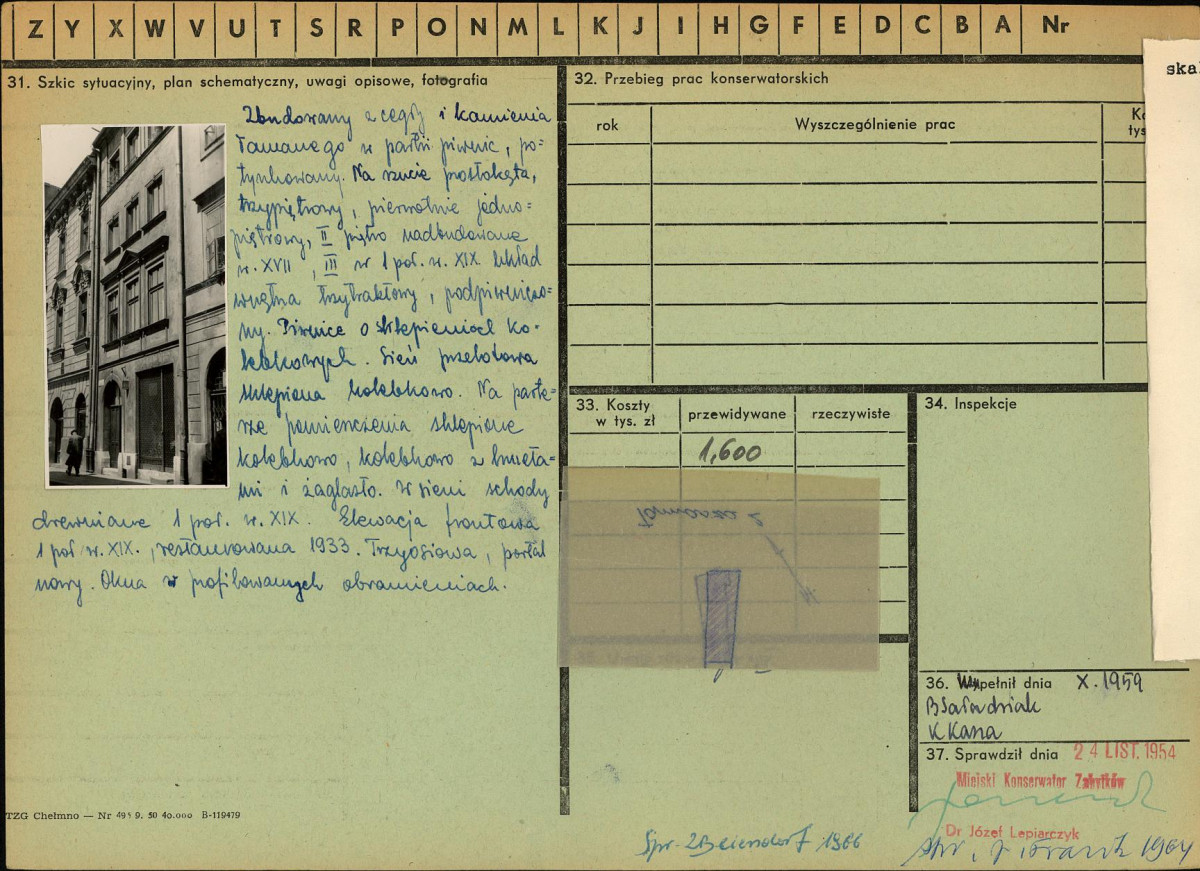 Z Y X W V U T S R P O N M L K J I H G F E D C B A Nr
31. Szkic sytuacyjny, plan schematyczny, uwagi opisowe, fotografia
Zbudowany z cegły i kamienia
łamanego w partii piwnic, po-
tynkowany. Na rzucie prostokąta,
trzypiętrowy, pierwotnie jedno-
piętrowy, II piętro nadbudowane
w. XVII, III w 1 poł. w. XIX. Układ
wnętrza trzytraktowy, podpiwniczo-
ny. Piwnice o sklepieniach ko-
lebkowych. Sień przelotowa
sklepiona kolebkowo. Na parte-
rze pomieszczenia sklepione
kolebkowo, kolebkowo z luneta-
mi i żaglasto. W sieni schody
drewniane 1 poł. w. XIX. Elewacja frontowa
1 poł w. XIX., restaurowana 1933. Trzyosiowa, portal
nowy. Okna w profilowanych obramieniach.
TZG Chełmno — Nr 495 9. 50 40.000 B-119479
32. Przebieg prac konserwatorskich
rok
Wyszczególnienie prac
tys
ska
33. Koszty
w tys. zł
przewidywane
rzeczywiste
1,600
34. Inspekcje
36. Wypełnił dnia X. 1959
K Kasza
37. Sprawdził dnia 24 LIST. 1954
Miejski Konserwator Zabytków
Dr Józef Lepiarczyk
Spr. Z Beiersdorf 1966
spr. 1964